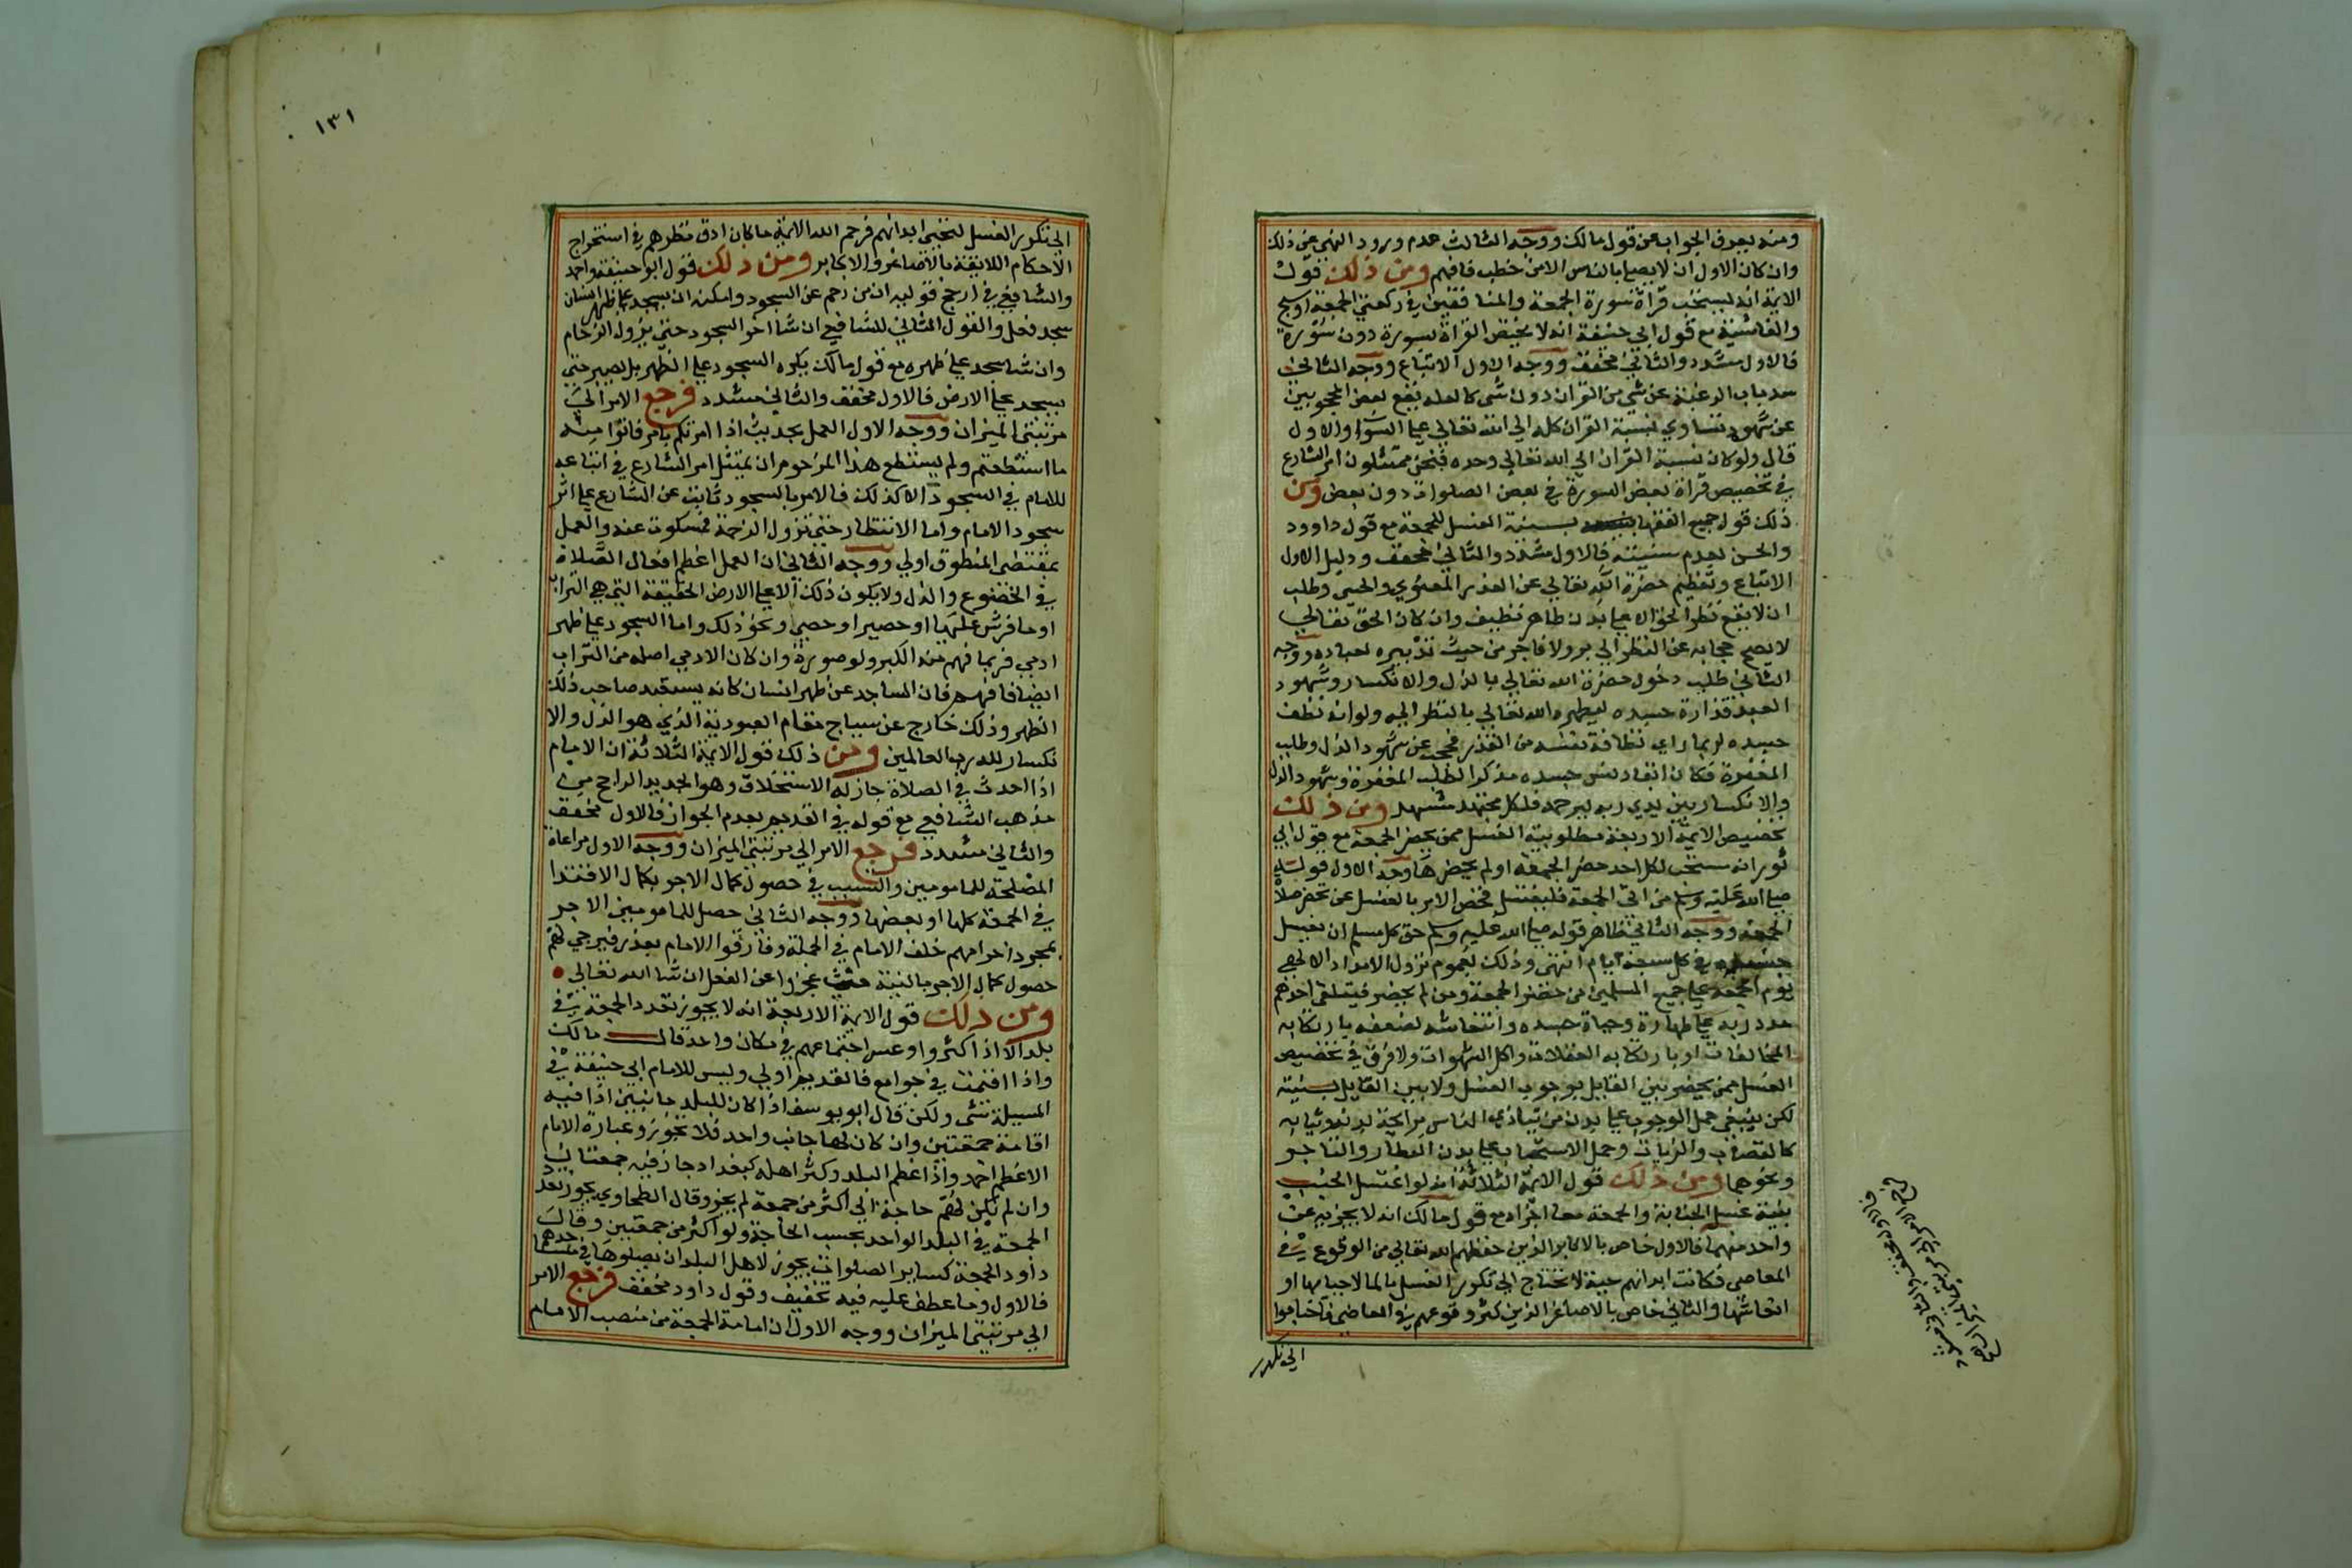 ومنه يعرف الجواب عن قول مالك ووجه الثالث عدم ورود النهي عن ذلك
وان كان الاول ان لا يصلي بالناس الا من خطب فافهم ومن ذلك قول
الايمة انه يستحب قراة سورة الجمعة والمنافقين في ركعتي الجمعة او سبح
والغاشية مع قول ابي حنيفة انه لا يختص القراة بسورة دون سورة
فالاول مشدد والثاني مخفف ووجه الاول الاتباع ووجه الثاني
سد باب الرغبة عن شي من القران دون شي كما لعله يقع لبعض المحجوبين
عن شهود تساوي نسبة القران كله الي الله تعالي علي السوا والاول
قال ولو كان نسبة القران الي الله تعالي وحده فنحن ممتثلون امر الشارع
في تخصيص قراة بعض السورة في بعض الصلوات دون بعض ومن
ذلك قول جميع الفقها بسنية الغسل للجمعة مع قول داوود
والحسن بعدم سنيته فالاول مشدد والثاني مخفف ودليل الاول
الاتباع وتعظيم حضرة الله تعالي عن القذر المعنوي والحسي وطلب
ان لا يقع نظر الحق الا علي بدن طاهر نظيف وان كان الحق تعالي
لا يصح حجابه عن النظر الي بر ولا فاجر من حيث تدبيره لعباده ووجه
الثاني طلب دخول حضرة الله تعالي بالذل والانكسار وشهود
العبد قذارة جسده ليطهره الله تعالي بالنظر اليه ولو انه نظف
جسده لربما راي نظافة نفسه من القذر فحجب عن شهود الذل وطلب
المغفرة فكان ابقا دنس جسده مذكرا لطلب المغفرة وشهود الذل
والانكسار بين يدي ربه ليرحمه فلكل مجتهد مشهد ومن ذلك
تخصيص الايمة الاربعة مطلوبية الغسل بمن يحضر الجمعة مع قول ابي
ثور انه مستحب لكل احد حضر الجمعة او لم يحضرها ووجه الاول قوله
صلي الله عليه وسلم من اتي الجمعة فليغتسل فخص الامر بالغسل عن تحضر صلاة
الجمعة ووجه الثاني ظاهر قوله صلي الله عليه وسلم حق كل مسلم ان يغسل
جسده في كل سبعة ايام انتهي وذلك لعموم نزول الامداد الالهي
يوم الجمعة علي جميع المسلمين من حضر الجمعة ومن لم يحضر فيتلقي احدهم
مدد ربه علي طهارة وحياة جسده وانتعاشه لضعفه بارتكابه
المخالفات او بارتكابه الغفلات واكل الشهوات ولا فرق في تخصيص
الغسل بمن يحضر بين القايل بوجوب الغسل ولا بين القايل بسنيته
لكن ينبغي حمل الوجوب علي بدن من يتاذي الناس برايحة بدنه وثيابه
كالقصاب والزيات وحمل الاستحباب علي بدن العطار والتاجر
ونحوهما ومن ذلك قول الايمة الثلاثة انه لو اغتسل الجنب
بنية غسل الجنابة والجمعة معا اجزاه مع قول مالك انه لا يجزيه عن
واحد منهما فالاول خاص بالاكابر الذين حفظهم الله تعالي من الوقوع في
المعاصي فكانت ابدانهم حية لا تحتاج الي تكرير الغسل بالما لاحيائها او
انعاشها والثاني خاص بالاصاغر الذين كثر وقوعهم في المعاصي فاحتاجوا
الي تكرير
فالاول مخفف والثاني مشدد
فرجع الامر الي مرتبتي الميزان
١٣١
الي تكرير الغسل لتحيي ابدانهم فرحم الله الايمة ما كان ادق نظرهم في استخراج
الاحكام اللائقة بالاصاغر والاكابر ومن ذلك قول ابو حنيفة واحمد
والشافعي في ارجح قوليه ان من زحم عن السجود وامكنه ان يسجد علي ظهر انسان
سجد فعل والقول الثاني للشافعي ان شا اخر السجود حتي يزول الزحام
وان شا سجد علي ظهره مع قول مالك يكره السجود علي الظهر بل يصبر حتي
يسجد علي الارض فالاول مخفف والثاني مشدد فرجع الامر الي
مرتبتي الميزان ووجه الاول العمل بحديث اذا امرتكم بامر فاتوا منه
ما استطعتم ولم يستطع هذا المزحوم ان يمتثل امر الشارع في اتباعه
للامام في السجود الا كذلك فالامر بالسجود ثابت عن الشارع علي اثر
سجود الامام واما الانتظار حتي تزول الزحمة فمسكوت عنه والعمل
بمقتضي المنطوق اولي ووجه الثاني ان العمل اعظم افعال الصلاة
في الخضوع والذل ولا يكون ذلك الا علي الارض الحقيقة التي هي التراب
او ما فرش عليها او حصير او حصي ونحو ذلك واما السجود علي ظهر
ادمي فربما فهم منه الكبر ولو صورة وان كان الادمي اصله من التراب
ايضا فافهم فان الساجد عن ظهر انسان كانه يستعبد صاحب ذلك
الظهر وذلك خارج عن سياج مقام العبودية الذي هو الذل والا
نكسار لله رب العالمين ومن ذلك قول الايمة الثلاثة ان الامام
اذا احدث في الصلاة جاز له الاستخلاف وهو الجديد الراجح من
مذهب الشافعي مع قوله في القديم بعدم الجواز فالاول مخفف
والثاني مشدد فرجع الامر الي مرتبتي الميزان ووجه الاول مراعاة
المصلحة للمامومين والتسبب في حصول كمال الاجر بكمال الاقتدا
في الجمعة كلها او بعضها ووجه الثاني حصل للمامومين الاجر
بمجرد احرامهم خلف الامام في الجملة وفارقوا الامام بعذر فيرجي لهم
حصول كمال الاجر بالنية حيث عجزوا عن الفعل ان شا الله تعالي
ومن ذلك قول الايمة الاربعة انه لا يجوز تعدد الجمعة في
بلد الا اذا اكثروا وعسر اجتماعهم في مكان واحد قال مالك
واذا اقيمت في جوامع فالقديم اولي وليس للامام ابي حنيفة في
المسيلة شي ولكن قال ابو يوسف اذا كان للبلد جانبين اذا فيه
اقامة جمعتين وان كان لها جانب واحد فلا تجوز وعبارة الامام
الاعظم احمد واذا اعظم البلد وكثر اهله كبغداد جاز فيه جمعتان
وان لم يكن لهم حاجة الي اكثر من جمعة لم يجز وقال الطحاوي يجوز تعدد
الجمعة في البلد الواحد بحسب الحاجة ولو اكثر من جمعتين وقال
داود الجمعة كساير الصلوات يجوز لاهل البلد ان يصلوها في مساجدهم
فالاول وما عطف عليه فيه تخفيف وقول داود مخفف فرجع الامر
الي مرتبتي الميزان ووجه الاول ان امامة الجمعة من منصب الامام